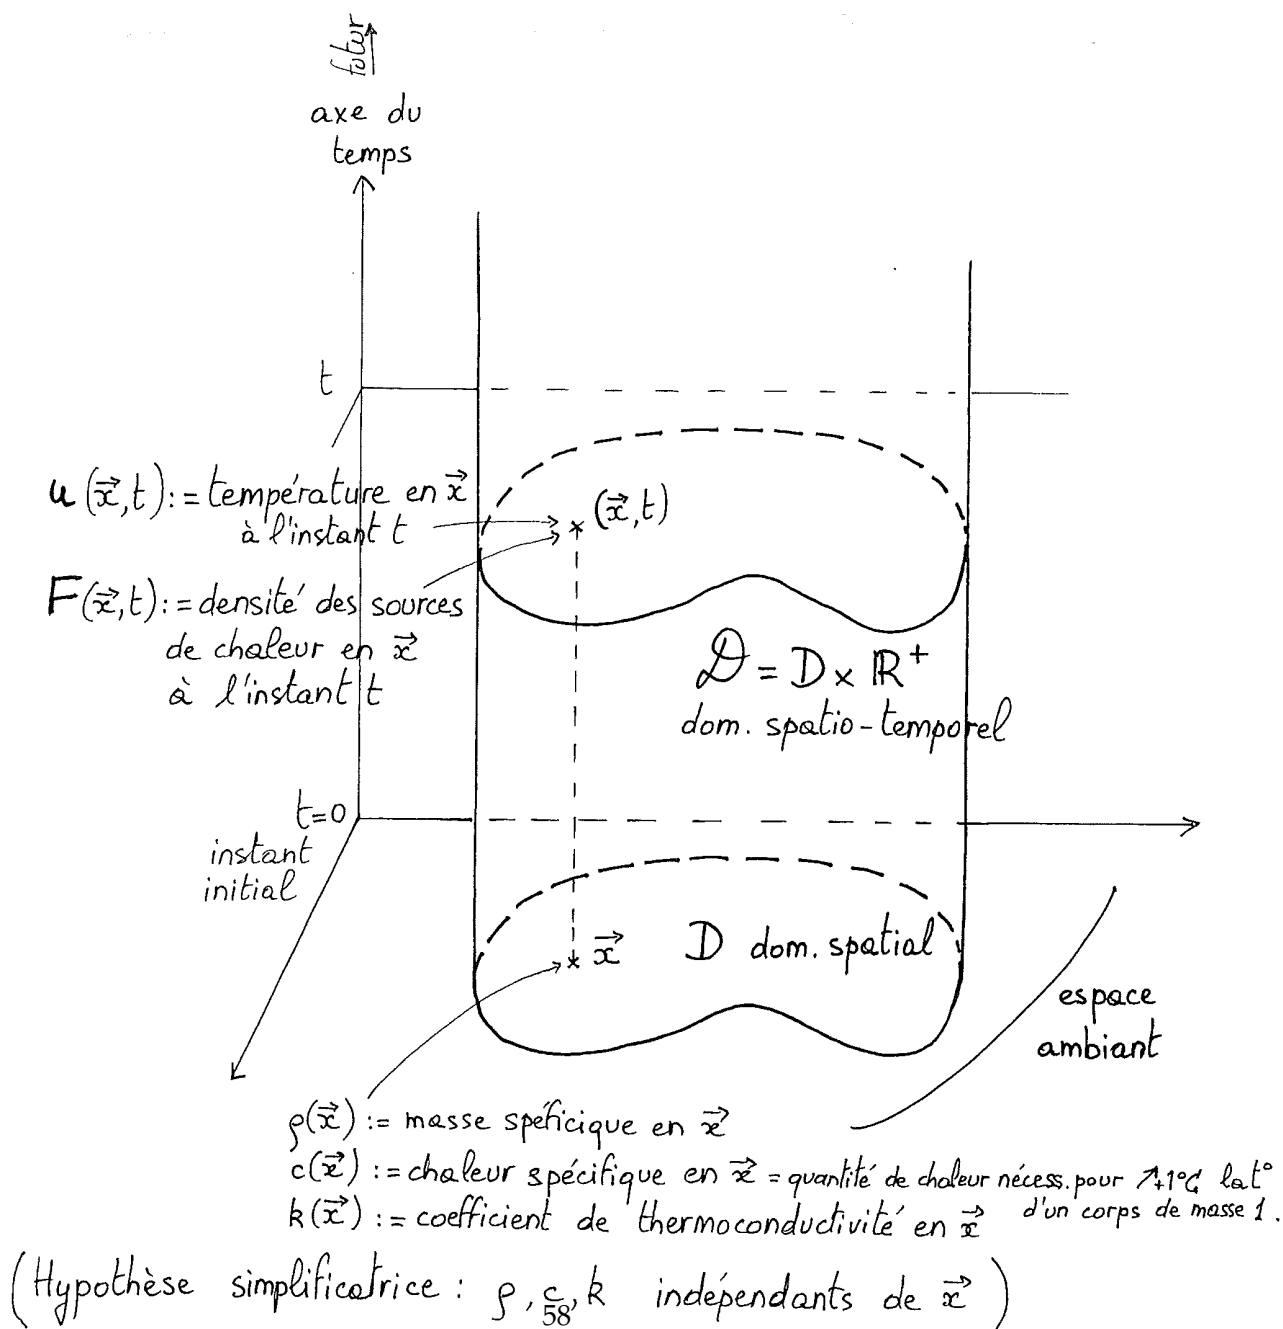 futur
axe du
temps
t
u(x⃗,t):=température en x⃗
à l'instant t
(x⃗,t)
F(x⃗,t):=densité des sources
de chaleur en x⃗
à l'instant t
𝒟 = D × ℝ⁺
dom. spatio-temporel
t=0
instant
initial
x⃗ D dom. spatial
espace
ambiant
ρ(x⃗) := masse spéficique en x⃗
c(x⃗) := chaleur spécifique en x⃗ = quantité de chaleur nécess. pour ↗+1°C la t°
d'un corps de masse 1.
k(x⃗) := coefficient de thermoconductivité en x⃗
(Hypothèse simplificatrice : ρ, c, k indépendants de x⃗)
58